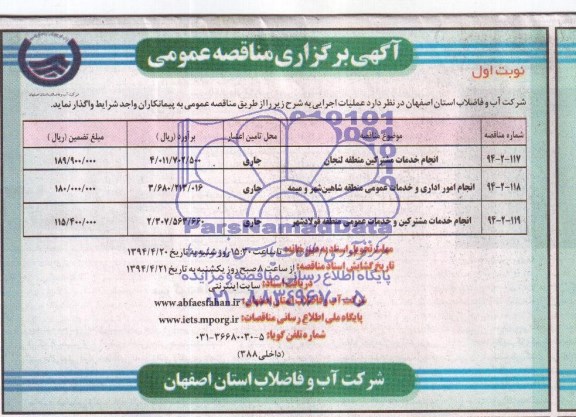 آگهی برگزاری مناقصه عمومی
نوبت اول
شرکت آب و فاضلاب استان اصفهان
شرکت آب و فاضلاب استان اصفهان در نظر دارد عملیات اجرایی به شرح زیر را از طریق مناقصه عمومی به پیمانکاران واجد شرایط واگذار نماید.
شماره مناقصه موضوع مناقصه محل تامین اعتبار برآورد (ریال) مبلغ تضمین (ریال)
۹۴-۲-۱۱۷ انجام خدمات مشترکین منطقه لنجان جاری ۴/۰۱۱/۷۰۲/۵۰۰ ۱۸۹/۹۰۰/۰۰۰
۹۴-۲-۱۱۸ انجام امور اداری و خدمات عمومی منطقه شاهین‌شهر و میمه جاری ۳/۶۸۰/۲۱۲/۰۱۶ ۱۸۰/۰۰۰/۰۰۰
۹۴-۲-۱۱۹ انجام خدمات مشترکین و خدمات عمومی منطقه فولادشهر جاری ۲/۳۰۷/۵۶۳/۶۶۰ ۱۱۵/۴۰۰/۰۰۰
ParsNamadData
مهلت تحویل اسناد به تا ساعت ۱۵:۳۰ روز شنبه به تاریخ ۱۳۹۴/۴/۲۰
تاریخ گشایش اسناد مناقصه: از ساعت ۸ صبح روز یکشنبه به تاریخ ۱۳۹۴/۴/۲۱
پایگاه اطلاع رسانی مناقصه و مزایده
دریافت اسناد: سایت اینترنتی
شرکت آب و فاضلاب استان اصفهان: www.abfaesfahan.ir
۰۲۱-۸۸۳۴۹۶۷۰-۵
پایگاه ملی اطلاع رسانی مناقصات: www.iets.mporg.ir
شماره تلفن گویا: ۵-۳۶۶۸۰۰۳۰-۰۳۱
(داخلی ۳۸۸)
شرکت آب و فاضلاب استان اصفهان